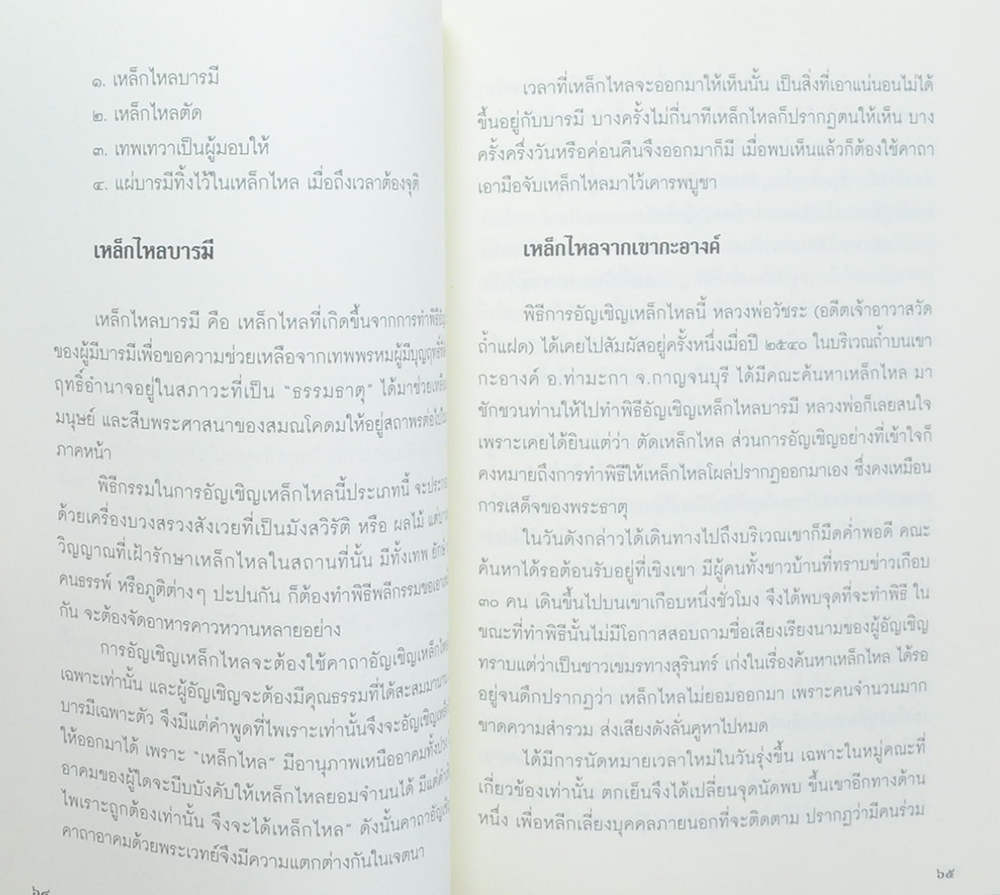 ๑. เหล็กไหลบารมี
๒. เหล็กไหลตัด
๓. เทพเทวาเป็นผู้มอบให้
๔. แผ่บารมีทิ้งไว้ในเหล็กไหล เมื่อถึงเวลาต้องจุติ
เหล็กไหลบารมี
เหล็กไหลบารมี คือ เหล็กไหลที่เกิดขึ้นจากการทำพิธี
ของผู้มีบารมีเพื่อขอความช่วยเหลือจากเทพพรหมผู้มีบุญฤทธิ์
ฤทธิ์อำนาจอยู่ในสภาวะที่เป็น “ธรรมธาตุ” ได้มาช่วยเหลือ
มนุษย์ และสืบพระศาสนาของสมณโคดมให้อยู่สถาพรต่อไปใน
ภาคหน้า
พิธีกรรมในการอัญเชิญเหล็กไหลนี้ประเภทนี้ จะ
ด้วยเครื่องบวงสรวงสังเวยที่เป็นมังสวิรัติ หรือ ผลไม้
วิญญาณที่เฝ้ารักษาเหล็กไหลในสถานที่นั้น มีทั้งเทพ ยักษ์
คนธรรพ์ หรือภูติต่างๆ ปะปนกัน ก็ต้องทำพิธีพลีกรรมขอ
กัน จะต้องจัดอาหารคาวหวานหลายอย่าง
การอัญเชิญเหล็กไหลจะต้องใช้คาถาอัญเชิญเหล็กไหล
เฉพาะเท่านั้น และผู้อัญเชิญจะต้องมีคุณธรรมที่ได้สะสมมานาน
บารมีเฉพาะตัว จึงมีแต่คำพูดที่ไพเราะเท่านั้นจึงจะอัญเชิญ
ให้ออกมาได้ เพราะ “เหล็กไหล” มีอานุภาพเหนืออาคม
อาคมของผู้ใดจะบีบบังคับให้เหล็กไหลยอมจำนนได้ มีแต่
ไพเราะถูกต้องเท่านั้น จึงจะได้เหล็กไหล” ดังนั้นคาถา
คาถาอาคมด้วยพระเวทย์จึงมีความแตกต่างกันในเจตนา
เวลาที่เหล็กไหลจะออกมาให้เห็นนั้น เป็นสิ่งที่เอาแน่นอนไม่ได้
ขึ้นอยู่กับบารมี บางครั้งไม่กี่นาทีเหล็กไหลก็ปรากฏตนให้เห็น บาง
ครั้งครึ่งวันหรือค่อนคืนจึงออกมาก็มี เมื่อพบเห็นแล้วก็ต้องใช้คาถา
เอามือจับเหล็กไหลมาไว้เคารพบูชา
เหล็กไหลจากเขากะอางค์
พิธีการอัญเชิญเหล็กไหลนี้ หลวงพ่อวัชระ (อดีตเจ้าอาวาสวัด
ถ้ำแฝด) ได้เคยไปสัมผัสอยู่ครั้งหนึ่งเมื่อปี ๒๕๔๐ ในบริเวณถ้ำบนเขา
กะอางค์ อ.ท่ามะกา จ.กาญจนบุรี ได้มีคณะค้นหาเหล็กไหล มา
ชักชวนท่านให้ไปทำพิธีอัญเชิญเหล็กไหลบารมี หลวงพ่อก็เลยสนใจ
เพราะเคยได้ยินแต่ว่า ตัดเหล็กไหล ส่วนการอัญเชิญอย่างที่เข้าใจก็
คงหมายถึงการทำพิธีให้เหล็กไหลโผล่ปรากฏออกมาเอง ซึ่งคงเหมือน
การเสด็จของพระธาตุ
ในวันดังกล่าวได้เดินทางไปถึงบริเวณเขาก็มืดค่ำพอดี คณะ
ค้นหาได้รอต้อนรับอยู่ที่เชิงเขา มีผู้คนทั้งชาวบ้านที่ทราบข่าวเกือบ
๓๐ คน เดินขึ้นไปบนเขาเกือบหนึ่งชั่วโมง จึงได้พบจุดที่จะทำพิธี ใน
ขณะที่ทำพิธีนั้นไม่มีโอกาสสอบถามชื่อเสียงเรียงนามของผู้อัญเชิญ
ทราบแต่ว่าเป็นชาวเขมรทางสุรินทร์ เก่งในเรื่องค้นหาเหล็กไหล ได้รอ
อยู่จนดึกปรากฏว่า เหล็กไหลไม่ยอมออกมา เพราะคนจำนวนมาก
ขาดความสำรวม ส่งเสียงดังลั่นคูหาไปหมด
ได้มีการนัดหมายเวลาใหม่ในวันรุ่งขึ้น เฉพาะในหมู่คณะที่
เกี่ยวข้องเท่านั้น ตกเย็นจึงได้เปลี่ยนจุดนัดพบ ขึ้นเขาอีกทางด้าน
หนึ่ง เพื่อหลีกเลี่ยงบุคคลภายนอกที่จะติดตาม ปรากฏว่ามีคนร่วม
๖๕